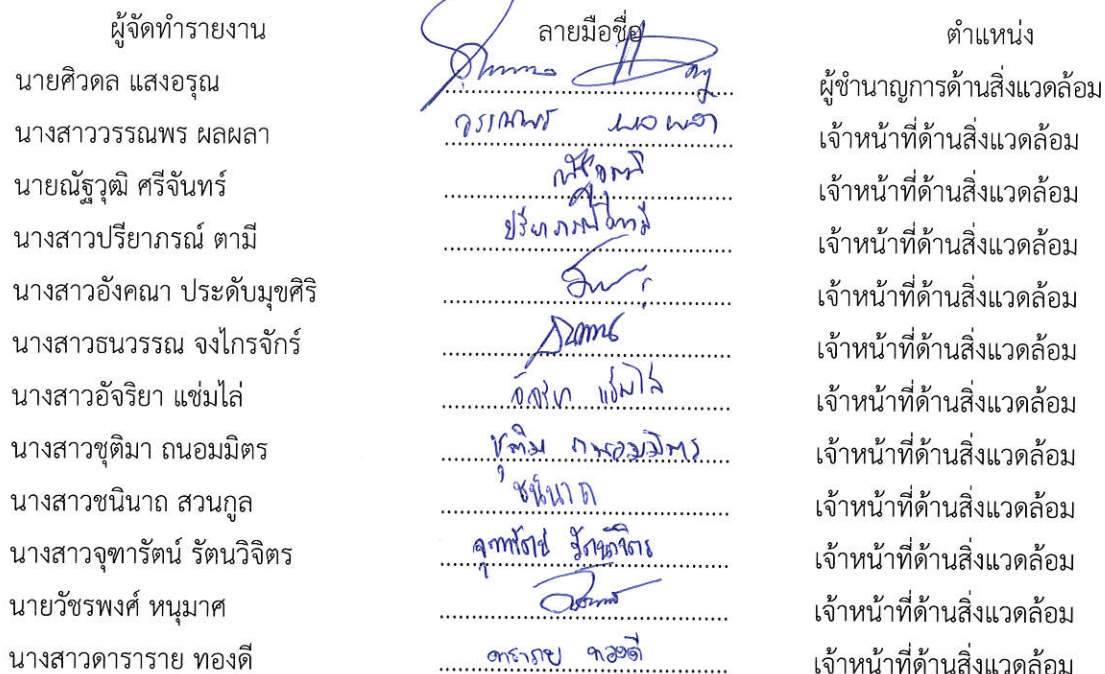 ผู้จัดทำรายงาน ลายมือชื่อ ตำแหน่ง
นายศิวดล แสงอรุณ ผู้ชำนาญการด้านสิ่งแวดล้อม
นางสาววรรณพร ผลผลา วรรณพร ผลผลา เจ้าหน้าที่ด้านสิ่งแวดล้อม
นายณัฐวุฒิ ศรีจันทร์ เจ้าหน้าที่ด้านสิ่งแวดล้อม
นางสาวปรียาภรณ์ ตามี ปรียาภรณ์ ตามี เจ้าหน้าที่ด้านสิ่งแวดล้อม
นางสาวอังคณา ประดับมุขศิริ เจ้าหน้าที่ด้านสิ่งแวดล้อม
นางสาวธนวรรณ จงไกรจักร์ เจ้าหน้าที่ด้านสิ่งแวดล้อม
นางสาวอัจริยา แช่มไล่ อัจริยา แช่มไล่ เจ้าหน้าที่ด้านสิ่งแวดล้อม
นางสาวชุติมา ถนอมมิตร ชุติมา ถนอมมิตร เจ้าหน้าที่ด้านสิ่งแวดล้อม
นางสาวชนินาถ สวนกูล ชนินาถ เจ้าหน้าที่ด้านสิ่งแวดล้อม
นางสาวจุฑารัตน์ รัตนวิจิตร จุฑารัตน์ รัตนวิจิตร เจ้าหน้าที่ด้านสิ่งแวดล้อม
นายวัชรพงศ์ หนุมาศ เจ้าหน้าที่ด้านสิ่งแวดล้อม
นางสาวดาราราย ทองดี ดาราราย ทองดี เจ้าหน้าที่ด้านสิ่งแวดล้อม